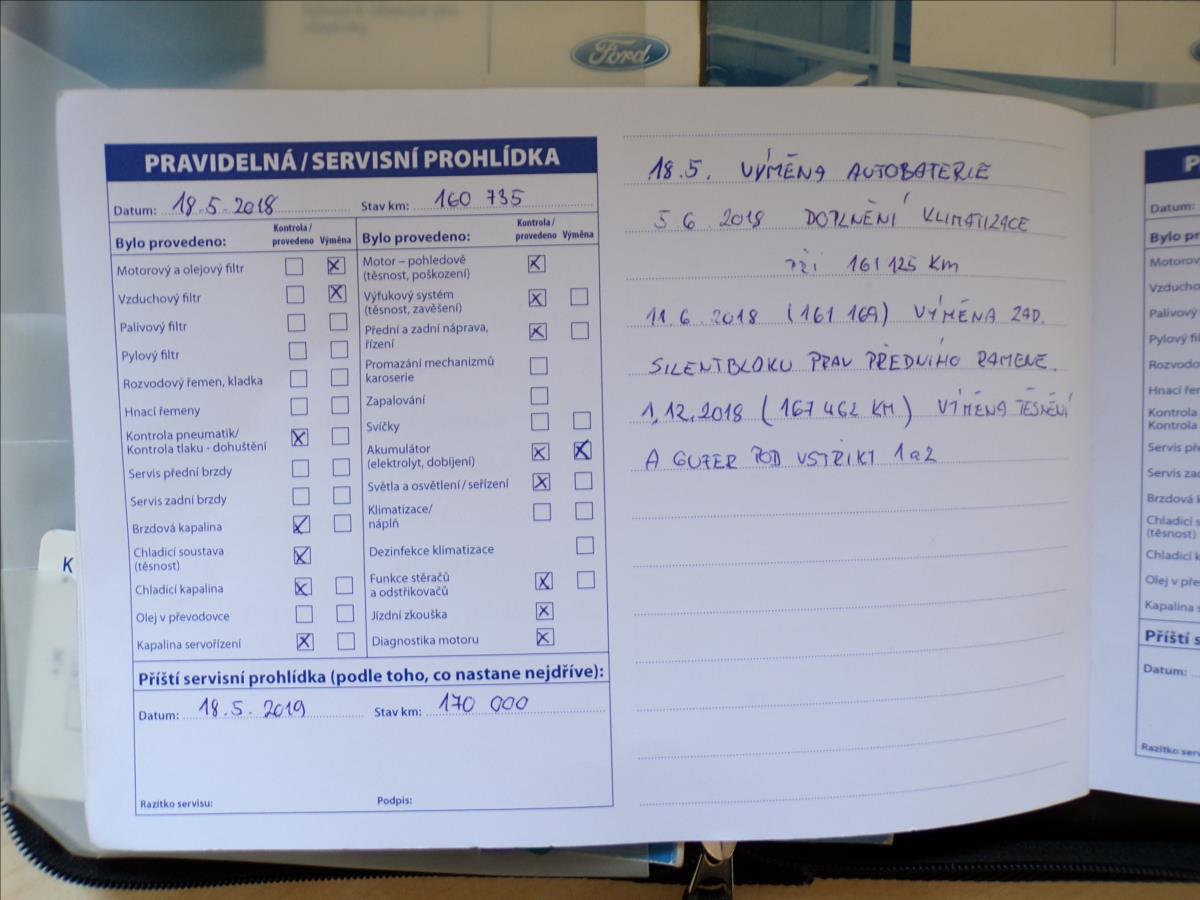 Ford
PRAVIDELNÁ / SERVISNÍ PROHLÍDKA
Datum: 18.5.2018 Stav km: 160 735
Bylo provedeno: Kontrola / provedeno Výměna
Motorový a olejový filtr
Vzduchový filtr
Palivový filtr
Pylový filtr
Rozvodový řemen, kladka
Hnací řemeny
Kontrola pneumatik/
Kontrola tlaku - dohuštění
Servis přední brzdy
Servis zadní brzdy
Brzdová kapalina
Chladicí soustava
(těsnost)
Chladicí kapalina
Olej v převodovce
Kapalina servořízení
Bylo provedeno: Kontrola / provedeno Výměna
Motor – pohledově
(těsnost, poškození)
Výfukový systém
(těsnost, zavěšení)
Přední a zadní náprava,
řízení
Promazání mechanizmů
karoserie
Zapalování
Svíčky
Akumulátor
(elektrolyt, dobíjení)
Světla a osvětlení / seřízení
Klimatizace/
náplň
Dezinfekce klimatizace
Funkce stěračů
a odstřikovačů
Jízdní zkouška
Diagnostika motoru
Příští servisní prohlídka (podle toho, co nastane nejdříve):
Datum: 18.5.2019 Stav km: 170 000
Razítko servisu: Podpis:
18.5. VÝMĚNA AUTOBATERIE
5 6. 2018 DOPLNĚNÍ KLIMATIZACE
PŘI 161 125 KM
11.6.2018 (161 169) VÝMĚNA ZAD.
SILENTBLOKU PRAV PŘEDNÍHO RAMENE.
1,12,2018 (167 462 KM) VÝMĚNA TĚSNĚNÍ
A GUFER POD VSTŘIKY 1 a 2
K
Datum:
Bylo pr
Motorov
Vzducho
Palivový
Pylový fil
Rozvodo
Hnací řem
Kontrola
Kontrola t
Servis pře
Servis zad
Brzdová k
Chladicí s
(těsnost)
Chladicí k
Olej v pře
Kapalina s
Příští s
Datum:
Razítko serv